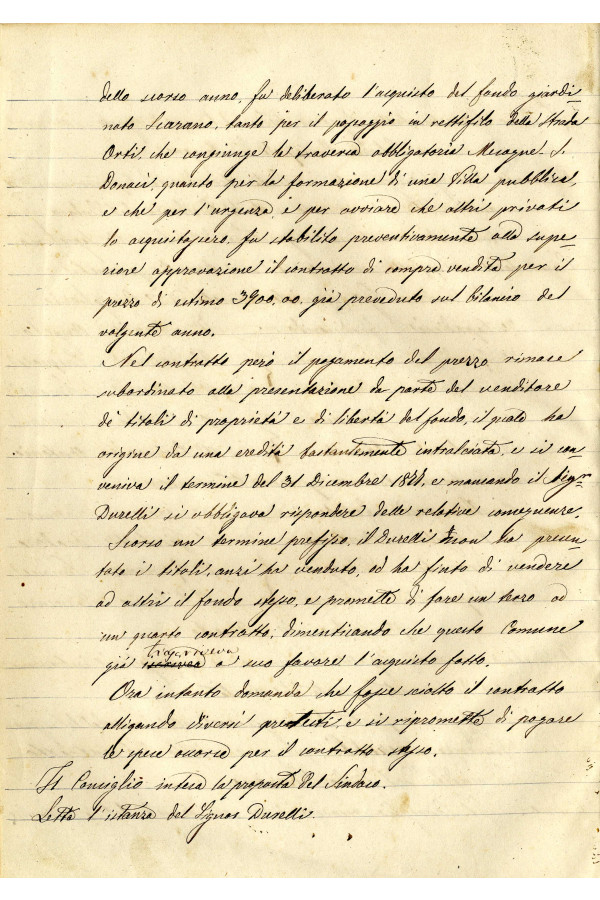 dello scorso anno, fu deliberato l'acquisto del fondo giardi-
nato Scazano, tanto per il passaggio in rettifilo della Strada
Orti, che congiunge la traversa obbligatoria Mesagne - S.
Donaci, quanto per la formazione di una Villa pubblica,
e che per l'urgenza, e per ovviare che altri privati
lo acquistassero, fu stabilito preventivamente alla supe-
riore approvazione il contratto di compra vendita per il
prezzo di estimo 3900,00. già preveduto sul bilancio del
volgente anno.
Nel contratto però il pagamento del prezzo rimase
subordinato alla presentazione da parte del venditore
de' titoli di proprietà e di libertà del fondo, il quale ha
origine da una eredità bastantemente intralciata, e si con-
veniva il termine del 31 Dicembre e mancando il Sigr
Durelli si obbligava rispondere delle relative conseguenze.
Scorso un termine prefisso, il Durelli non ha presen-
tato i titoli, anzi ha venduto, od ha finto di vendere
ad altri il fondo stesso, e promette di fare un terzo od
un quarto contratto, dimenticando che questo Comune
già a suo favore l'acquisto fatto.
Ora intanto domanda che fosse sciolto il contratto
allegando diversi pretesti, e si ripromette di pagare
le spese occorse per il contratto stesso.
Il Consiglio intesa la proposta del Sindaco.
Letta l'istanza del Signor Durelli.